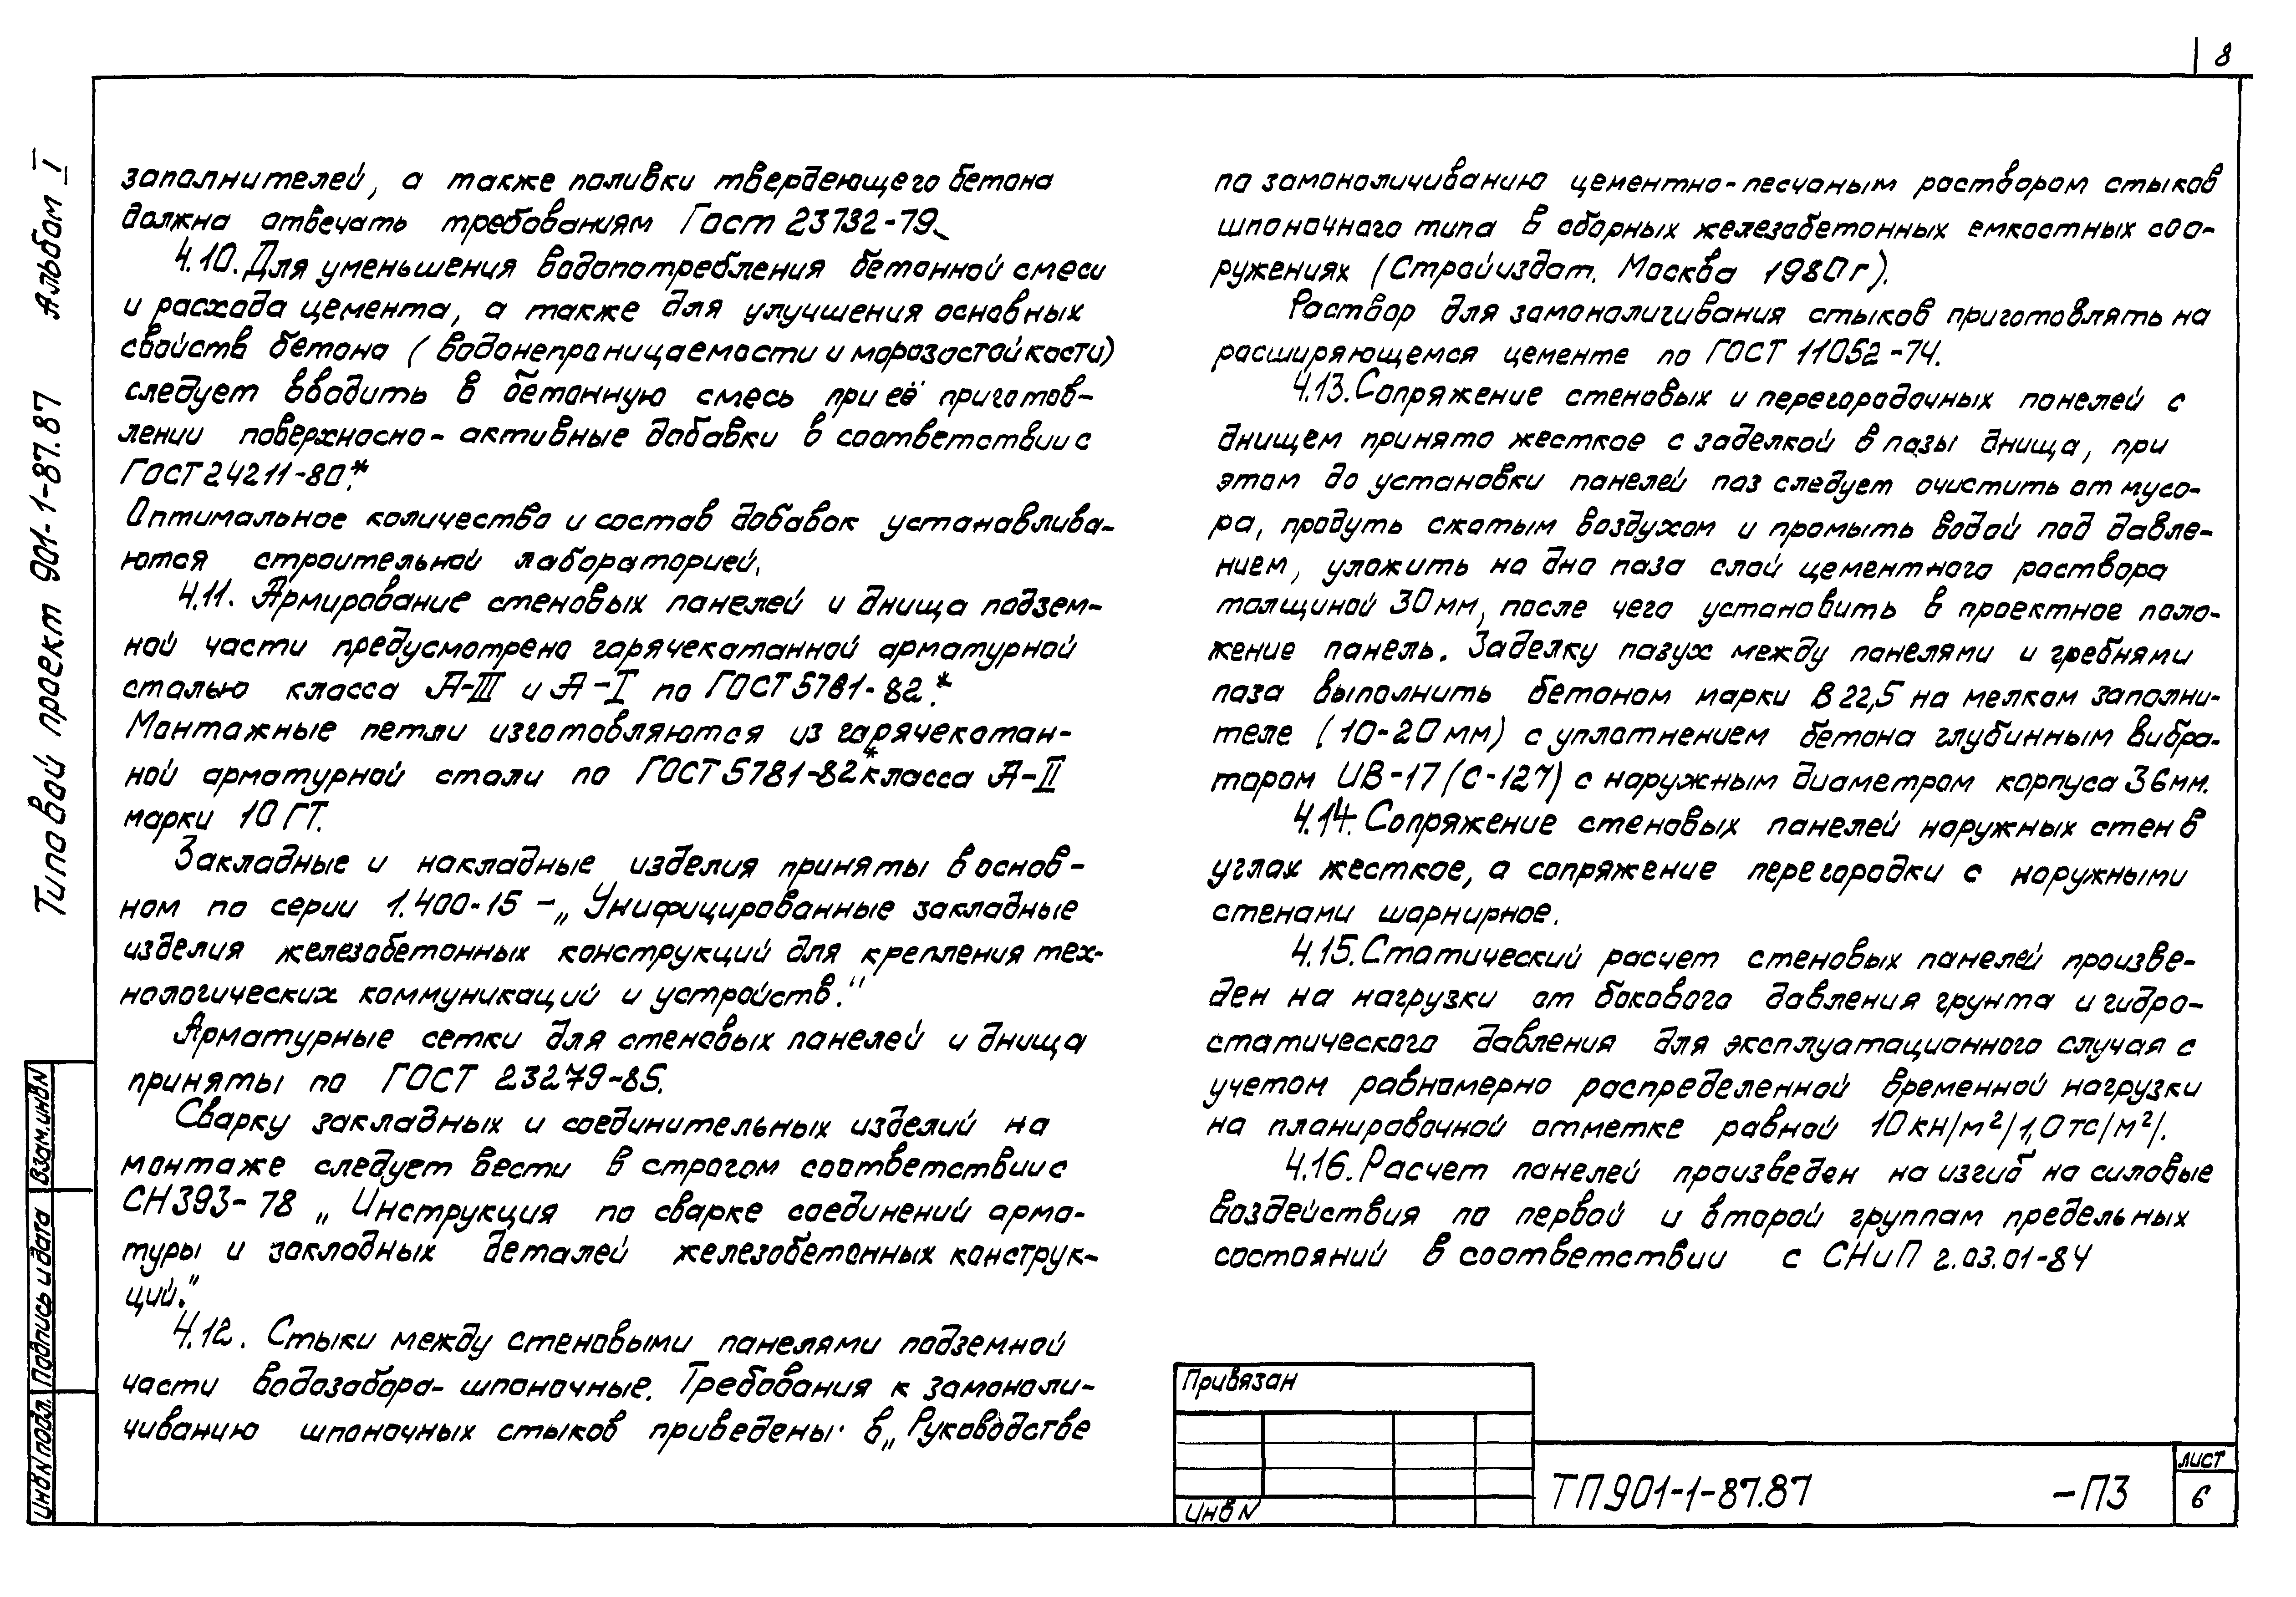 8
Типовой проект 901-1-87.87 Альбом I
заполнителей, а также поливки твердеющего бетона
должна отвечать требованиям Гост 23732-79.
4.10. Для уменьшения водопотребления бетонной смеси
и расхода цемента, а также для улучшения основных
свойств бетона (водонепроницаемости и морозостойкости)
следует вводить в бетонную смесь при её приготов-
лении поверхносно-активные добавки в соответствии с
ГОСТ 24211-80.*
Оптимальное количество и состав добавок устанавлива-
ются строительной лабораторией.
4.11. Армирование стеновых панелей и днища подзем-
ной части предусмотрено горячекатанной арматурной
сталью класса А-III и А-I по ГОСТ 5781-82.*
Монтажные петли изготовляются из горячекатан-
ной арматурной стали по ГОСТ 5781-82* класса А-II
марки 10 ГТ.
Закладные и накладные изделия приняты в основ-
ном по серии 1.400-15 - „Унифицированные закладные
изделия железобетонных конструкций для крепления тех-
нологических коммуникаций и устройств."
Арматурные сетки для стеновых панелей и днища
приняты по ГОСТ 23279-85.
Сварку закладных и соединительных изделий на
монтаже следует вести в строгом соответствии с
СН 393-78 „Инструкция по сварке соединений арма-
туры и закладных деталей железобетонных конструк-
ций."
4.12. Стыки между стеновыми панелями подземной
части водозабора- шпоночные. Требования к замоноли-
чиванию шпоночных стыков приведены в „Руководстве
по замоноличиванию цементно-песчаным раствором стыков
шпоночного типа в сборных железобетонных емкостных соо-
ружениях (Стройиздат. Москва 1980г).
Раствор для замоноличивания стыков приготовлять на
расширяющемся цементе по ГОСТ 11052-74.
4.13. Сопряжение стеновых и перегородочных панелей с
днищем принято жесткое с заделкой в пазы днища, при
этом до установки панелей паз следует очистить от мусо-
ра, продуть сжатым воздухом и промыть водой под давле-
нием, уложить на дно паза слой цементного раствора
толщиной 30мм, после чего установить в проектное поло-
жение панель. Заделку пазух между панелями и гребнями
паза выполнить бетоном марки В 22,5 на мелком заполни-
теле (10-20мм) с уплотнением бетона глубинным вибра-
тором ИВ-17 (С-127) с наружным диаметром корпуса 36мм.
4.14. Сопряжение стеновых панелей наружных стен в
углах жесткое, а сопряжение перегородки с наружными
стенами шарнирное.
4.15. Статический расчет стеновых панелей произве-
ден на нагрузки от бокового давления грунта и гидро-
статического давления для эксплуатационного случая с
учетом равномерно распределенной временной нагрузки
на планировочной отметке равной 10кн/м²/1,0тс/м²/.
4.16. Расчет панелей произведен на изгиб на силовые
воздействия по первой и второй группам предельных
состояний в соответствии с СНиП 2.03.01-84
Взам.инв N
Подпись и дата
Инв N подл.
Привязан
Инв N
ТП 901-1-87.87 -ПЗ
лист
6